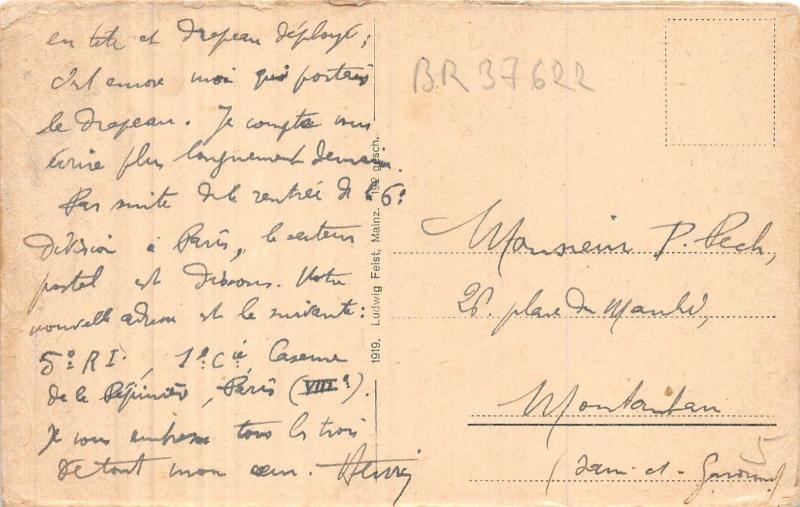 en tete et drapeau déployé ;
c'est encore moi qui portais
le drapeau. Je compte vous
écrire plus longuement demain.
Par suite de la rentrée de la 6e
division à Paris, le secteur
postal est dissous. Notre
nouvelle adresse est la suivante :
5e RI, 1e Cie, Caserne
de la Pépinière, Paris (VIIIe).
Je vous embrasse tous les trois
de tout mon cœur. Henri
1919. Ludwig Feist, Mainz. 192 gesch.
BR 37622
Monsieur P. Pech,
26. place du
Montauban
(Tarn-et-Garonne)
5